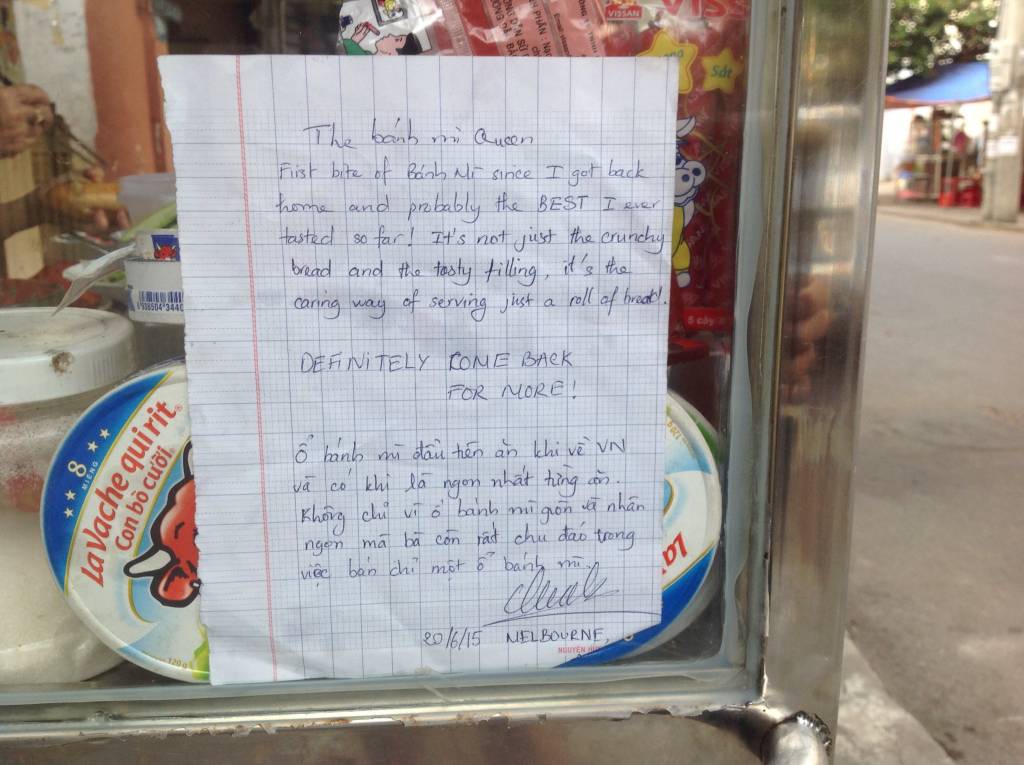 VISSAN
VISS
Sắt
The bánh mì Queen
First bite of Bánh Mì since I got back
home and probably the BEST I ever
tasted so far! It's not just the crunchy
bread and the tasty filling, it's the
caring way of serving just a roll of bread!.
DEFINITELY COME BACK
FOR MORE!
Ổ bánh mì đầu tiên ăn khi về VN
và có khi là ngon nhất từng ăn.
Không chỉ vì ổ bánh mì giòn và nhân
ngon mà bà còn rất chu đáo trong
việc bán chỉ một ổ bánh mì.
20/6/15 MELBOURNE,
8
MIẾNG
La Vache qui rit®
Con bò cười
120g
8 938504 3440
5 cây
La